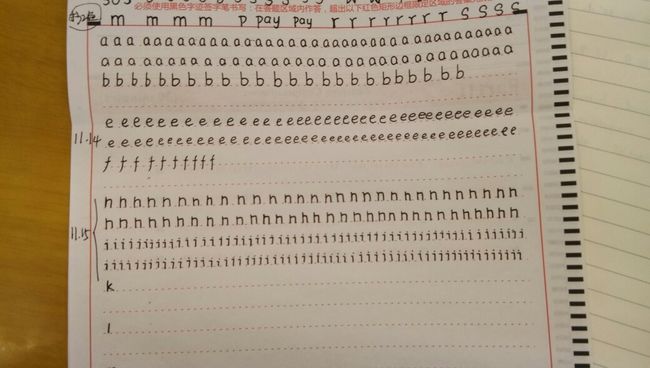 必须使用黑色字迹签字笔书写：在答题区域内作答，超出以下红色矩形边框限定区域的答案
m m m m p pay pay r r r r r r r s s s s
a a a a a a a a a a a a a a a a a a a a a a a a a a a a a a a a
a a a a a a a a a a a a a a a a a a a a a a a a a a a a a a a
b b b b b b b b b b b b b b b b b b b b b b b b b b
e e e e e e e e e e e e e e e e e e e e e e e e e e e e e e e e e e e
11.14 e e e e e e e e e e e e e e e e e e e e e e e e e e e e e e e e e e e e e e
f f f f f f f f f f
h h h h h h h h h h h h h h h h h h h h h h h h h h h h
11.15 h h h h h h h h h h h h h h h h h h h h h h h h h h h h
i i i i i i i i i i i i i i i i i i i i i i i i i i i i i i i i i i i i i i i i i i i i
i i i i i i i i i i i i i i i i i i i i i i i i i i i i i i i i i i i i i i i i i i i i
k
l